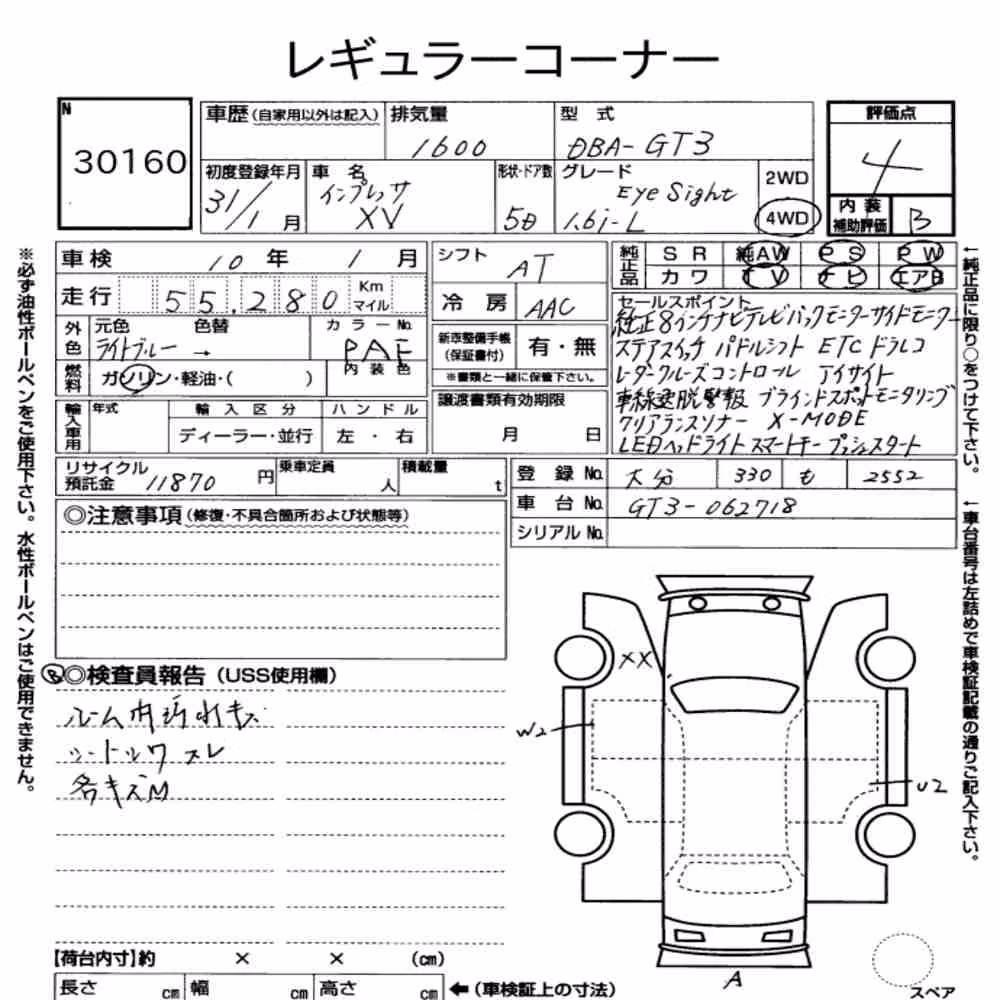 レギュラーコーナー
N
30160
車歴(自家用以外は記入)
排気量
1600
型 式
DBA-GT3
評価点
4
初度登録年月
31/1月
車 名
インプレッサ
XV
形状・ドア数
5D
グレード
Eye Sight
1.6i-L
2WD
4WD
内 装
補助評価
B
車 検 10 年 1 月
シフト
AT
純正品
S R 純AW P S P W
カ ワ T V ナ ビ エアB
走 行 55,280 Km
マイル
冷 房 AAC
セールスポイント
純正8インチナビテレビバックモニターサイドモニター
ステアスイッチ パドルシフト ETC ドラレコ
レーダークルーズコントロール アイサイト
車線逸脱警報 ブラインドスポットモニタリング
クリアランスソナー X-MODE
LEDヘッドライト スマートキー プッシュスタート
外色
元色 色替
ライトブルー →
カラーNo.
PAE
内 装 色
新車整備手帳
(保証書付)
有・無
※書類と一緒に保管下さい。
燃料
ガソリン・軽油・( )
譲渡書類有効期限
月 日
輸入車用
年式
輸 入 区 分
ディーラー・並行
ハ ン ド ル
左 ・ 右
リサイクル
預託金 11870 円
乗車定員
人
積載量
t
登 録 No. 大分 330 も 2552
車 台 No. GT3-062718
シリアル No.
◎注意事項(修復・不具合箇所および状態等)
B ◎検査員報告(USS使用欄)
ルーム内汚れキズ
シートシワ スレ
各キズM
XX
W2
U2
A
スペア
【荷台内寸】約 × × (cm)
長さ cm 幅 cm 高さ cm ←(車検証上の寸法)
※必ず油性ボールペンをご使用下さい。水性ボールペンはご使用できません。
←純正品に限り○をつけて下さい。
←車台番号は左詰めで車検証記載の通りご記入下さい。